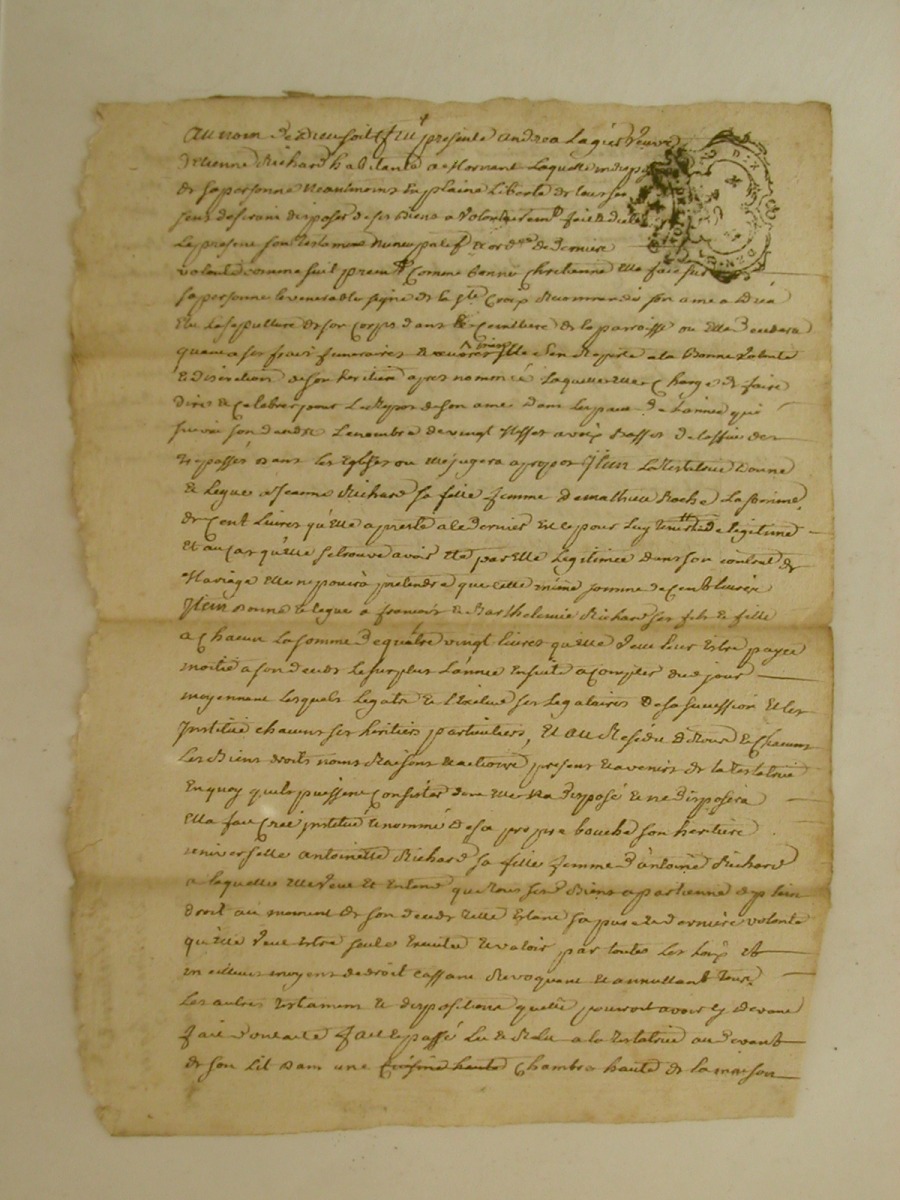 Au nom de Dieu soit fut presente andrea Lagier veuve
d'etienne Richard habitante de Mornant Laquelle indispo
de sa personne Neanmoins En plaine Liberte de tous ses
sens desirant disposer de ses Biens a volonte fait & dicte
Le present son testament nuncupatif et ord.re de derniere
volonté comme suit prem.t Comme bonne chretienne Elle face sur
sa personne le venerable signe de la S.te Croix Recommande son ame a Dieu
Elu La sepulture de son Corps dans le Cimettiere de la parroisse ou Elle decedera
quand a ses frais funeraires & œuvres pies Elle s'en Raporte a la Bonne volonte
& discretion de son heritiere apres nommée Laquelle Elle Charge de faire
dire & Celebrer pour Le Repos de son ame dans Les paux de L'année qui
suivra son deceds Le nombre de vingt Messes a voix basses de L'office des
trepassés dans les Eglises ou Elle jugera apropos Item La testatrice donne
& Legue a Jeanne Richard sa fille femme de mathieu Roche La somme
de Cent Livres qu'Elle a presté a Ce dernier Et Ce pour Luy tenir Lieu de legitime
Et au Cas qu'Elle se trouve avoir Eté par Elle Legitimée dans son contrat de
Mariage Elle ne poura pretendre que Cette même somme de Cent Livres
Item donne & legue a francois & Barthelemie Richard ses fils & fille
a Chacun La somme de quatre vingt Livres qu'Elle veut Leur Estre payée
moitié a son deceds Le surplus L'année Ensuite a Compter dud jour
moyennant Lesquels Legats Elle Exclue ses Legataires de sa sucession Et les
Institue chacuns ses heritiers particuliers, Et au Residu de Tous & Chacuns
Les Biens droits noms Raisons & actions present & avenirs de la testatrice
En quoy qu'ils puissent Consister dont Elle N'a disposé & ne disposera
Ella fait Créé institué & nommé de sa propre bouche son heritiere
universelle antoinette Richard sa fille femme d'antoine Richard
a laquelle Elle veut Et Entend que tous ses Biens apartienne de plein
droit au moment de son deceds telle Estant sa pure & derniere volonté
qu'Elle veut Estre seule Executée & valoir par toutes Les Loix Et
meilleurs moyens de droit Cassant Revoquant Et annullant tous
Les autres testament & dispositions qu'elle pourroit avoir Cy devant
fait dont acte fait & passé Lu & Relu a la testatrice au devant
de son Lit dans une Cuisine haute Chambre haute de la maison